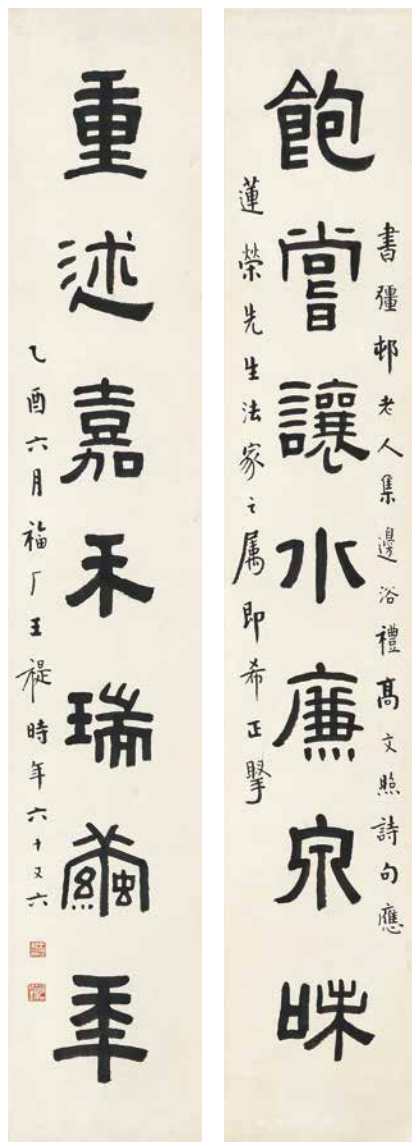 飽嘗讓水廉泉味
書彊邨老人集邊浴禮高文照詩句應
蓮榮先生法家之属即希正掔
重述嘉禾瑞繭年
乙酉六月福厂王禔時年六十又六